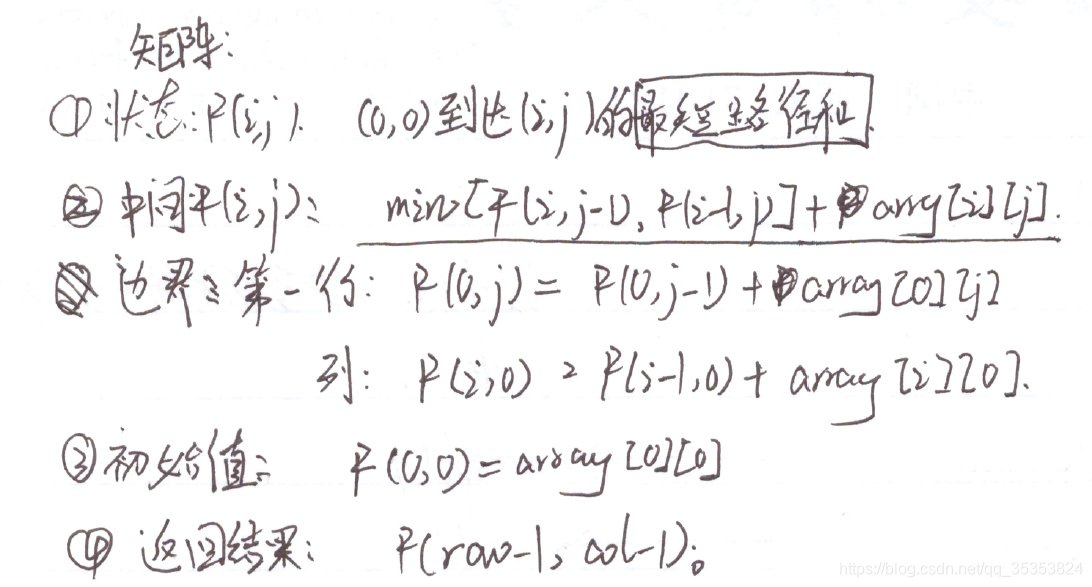 矩阵:
① 状态: F(i,j). (0,0)到达(i,j)的最短路径和.
② 中间F(i,j): min[F(i,j-1), F(i-1,j)] + array[i][j].
边界: 第一行: F(0,j) = F(0,j-1) + array[0][j]
列: F(i,0) = F(i-1,0) + array[i][0].
③ 初始值: F(0,0) = array[0][0]
④ 返回结果: F(row-1, col-1);
https://blog.csdn.net/qq_35353824